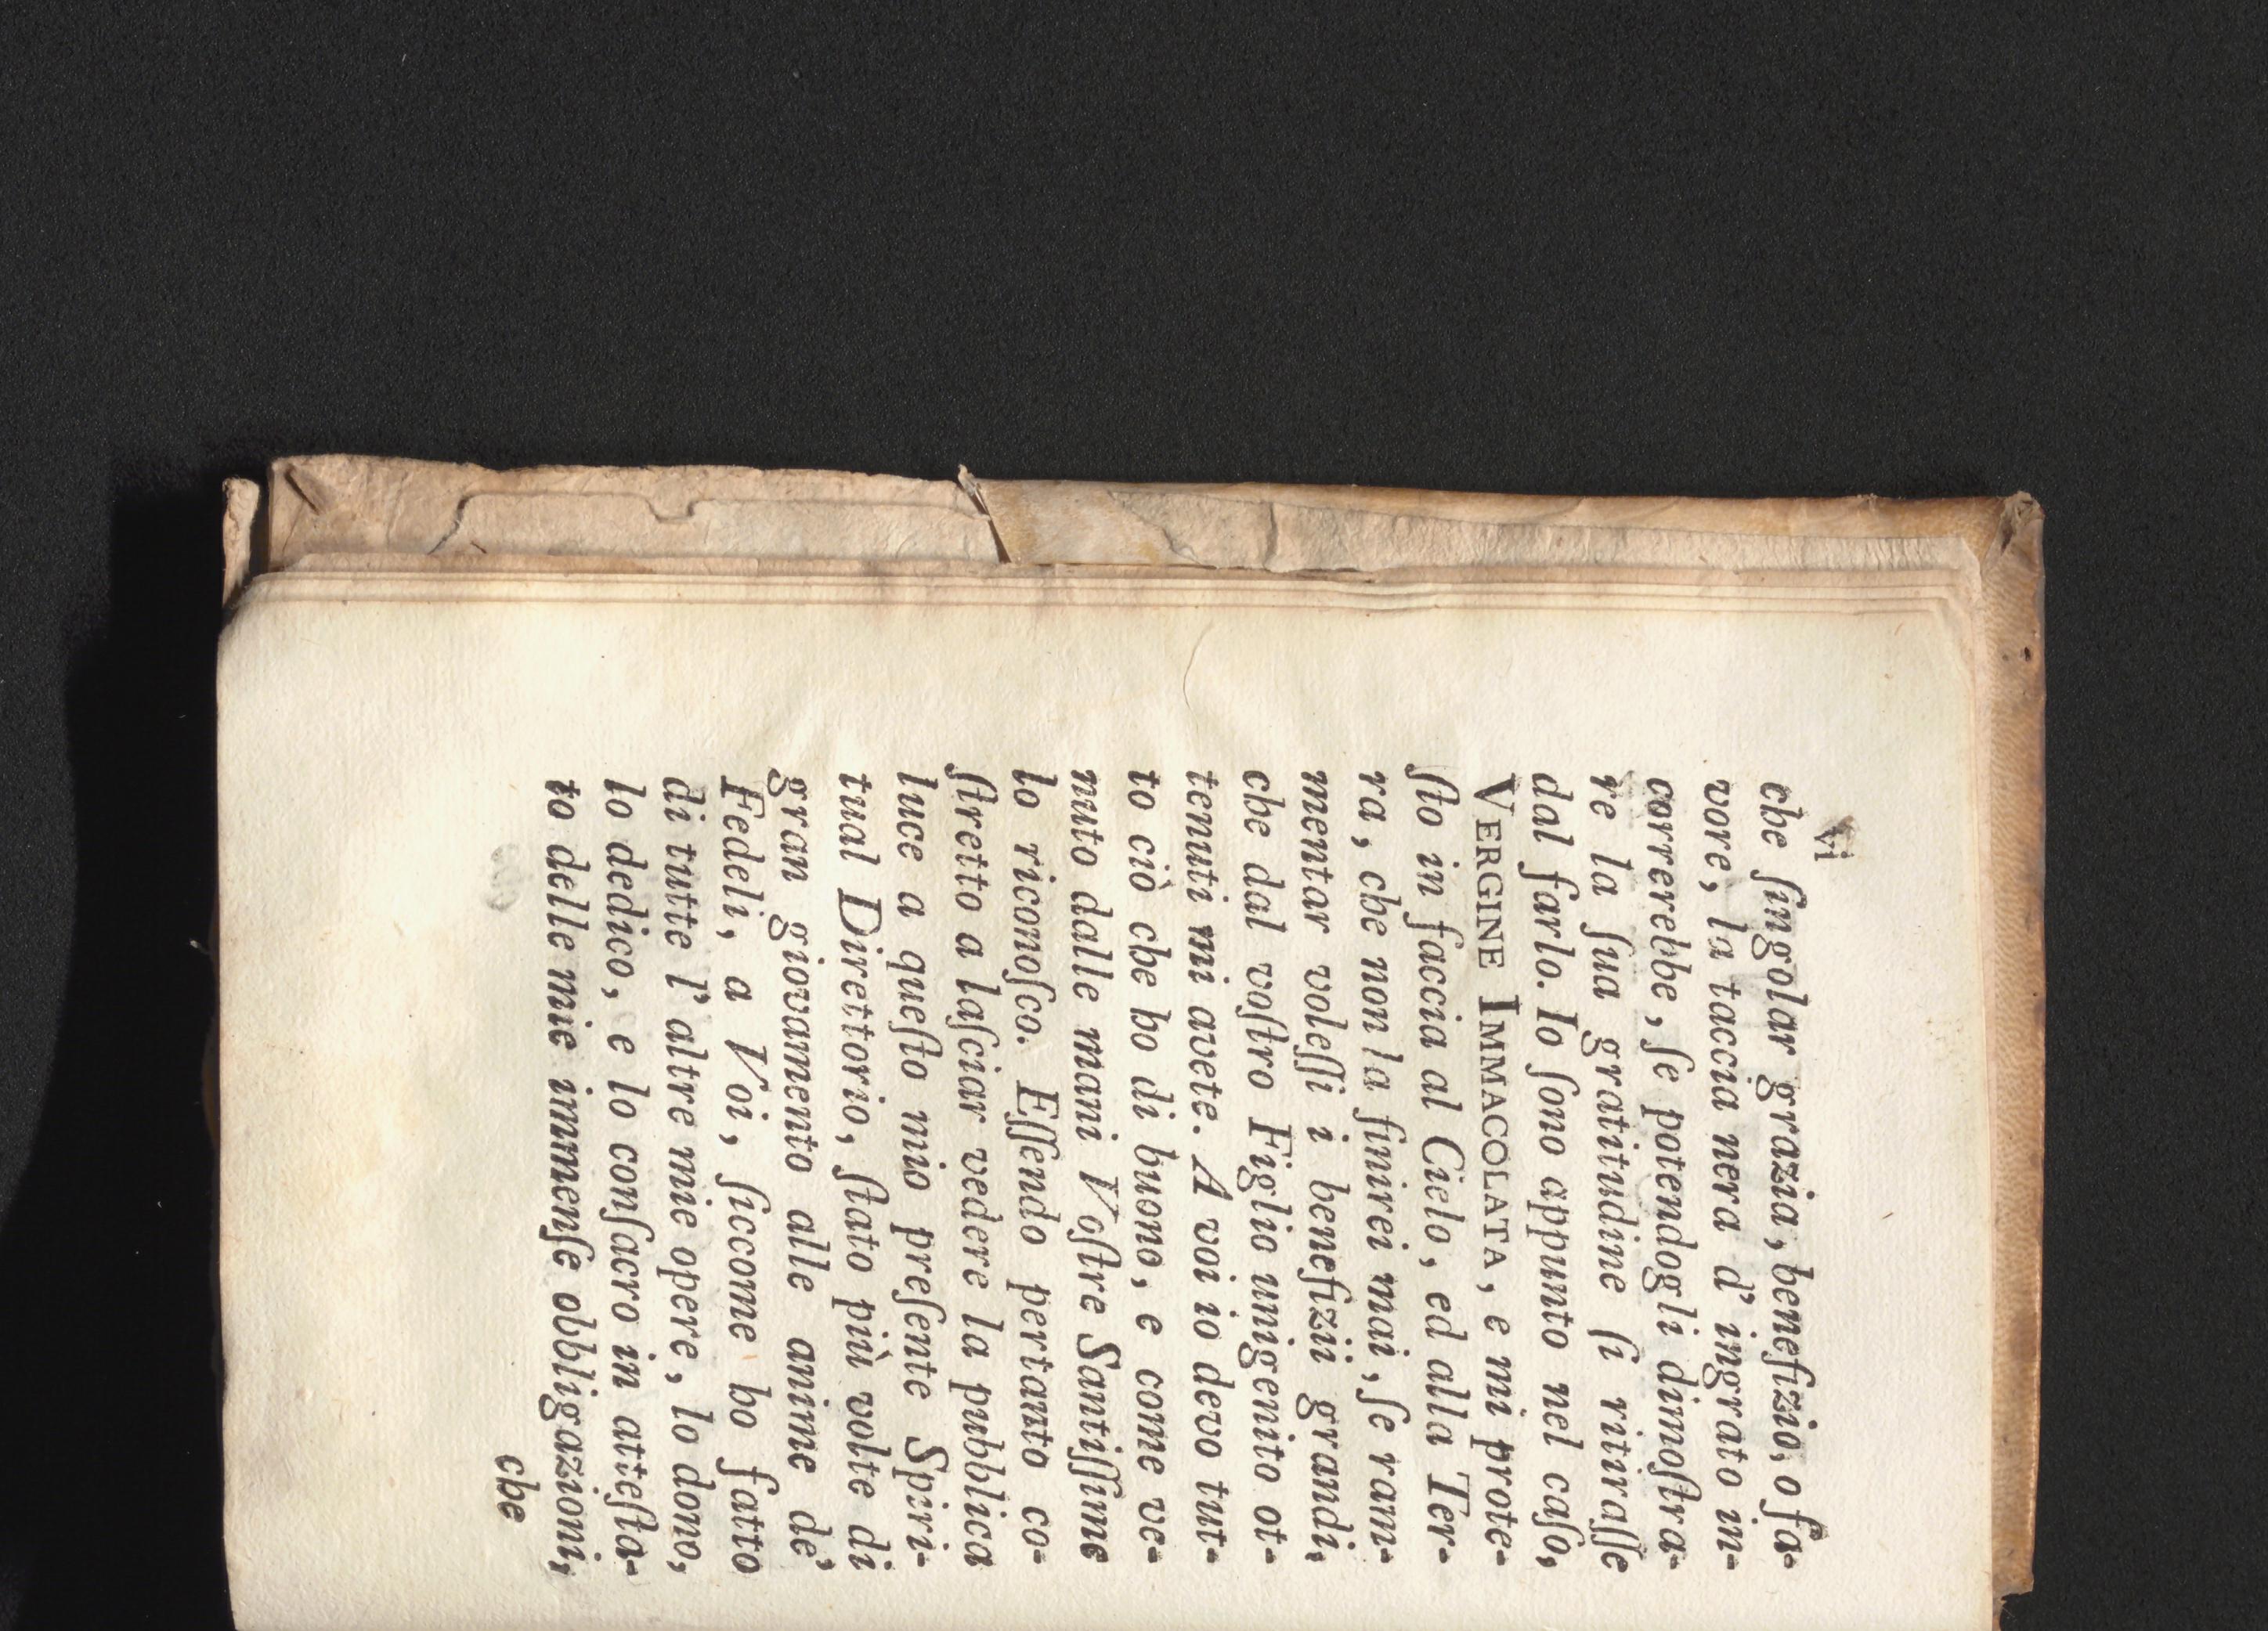 vi
che ſingolar grazia, benefizio, o fa-
vore, la taccia nera d' ingrato in-
correrebbe, ſe potendogli dimoſtra-
re la ſua gratitudine ſi ritiraſſe
dal farlo. Io ſono appunto nel caſo,
VERGINE IMMACOLATA, e mi prote-
ſto in faccia al Cielo, ed alla Ter-
ra, che non la finirei mai, ſe ram-
mentar voleſſi i benefizii grandi,
che dal voſtro Figlio unigenito ot-
tenuti mi avete. A voi io devo tut-
to ciò che ho di buono, e come ve-
nuto dalle mani Voſtre Santiſſime
lo riconoſco. Eſſendo pertanto co-
ſtretto a laſciar vedere la pubblica
luce a queſto mio preſente Spiri-
tual Direttorio, ſtato più volte di
gran giovamento alle anime de'
Fedeli, a Voi, ſiccome ho fatto
di tutte l' altre mie opere, lo dono,
lo dedico, e lo conſacro in atteſta-
to delle mie immenſe obbligazioni,
che